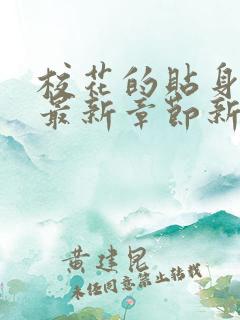 校花的贴身
最新章节新
黄建昆
未经同意禁止转载